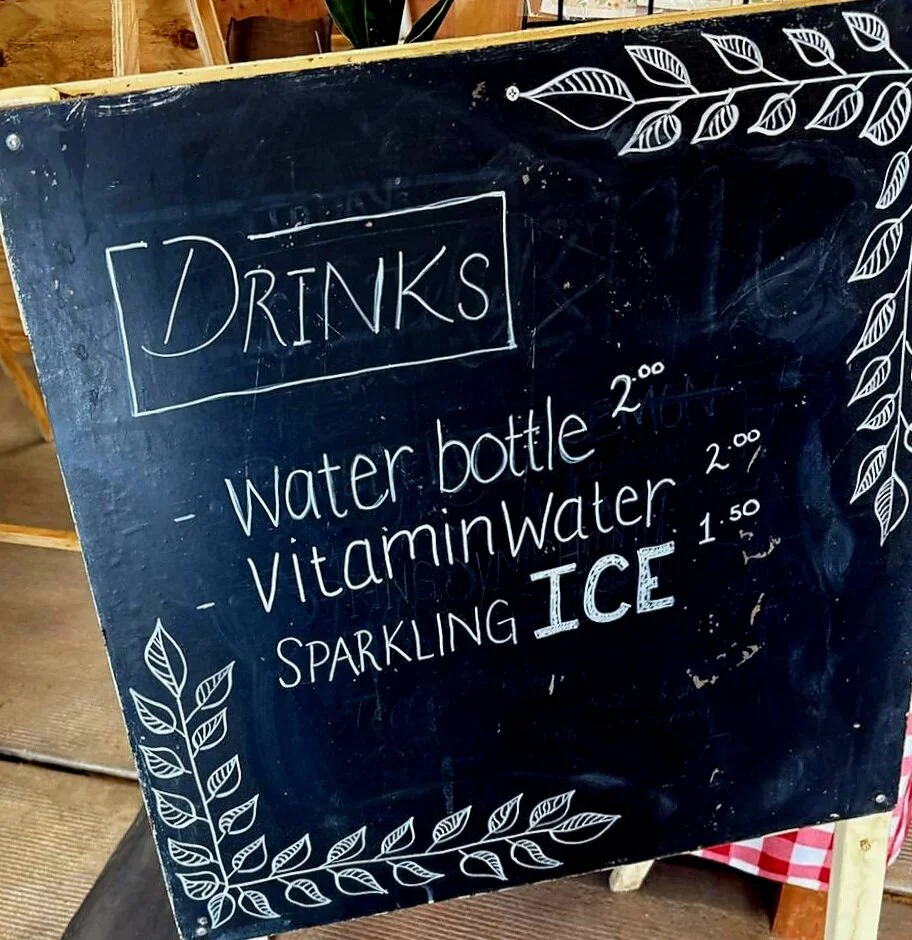 DRINKS
- Water bottle 2.00
- VitaminWater 2.00
SPARKLING ICE 1.50